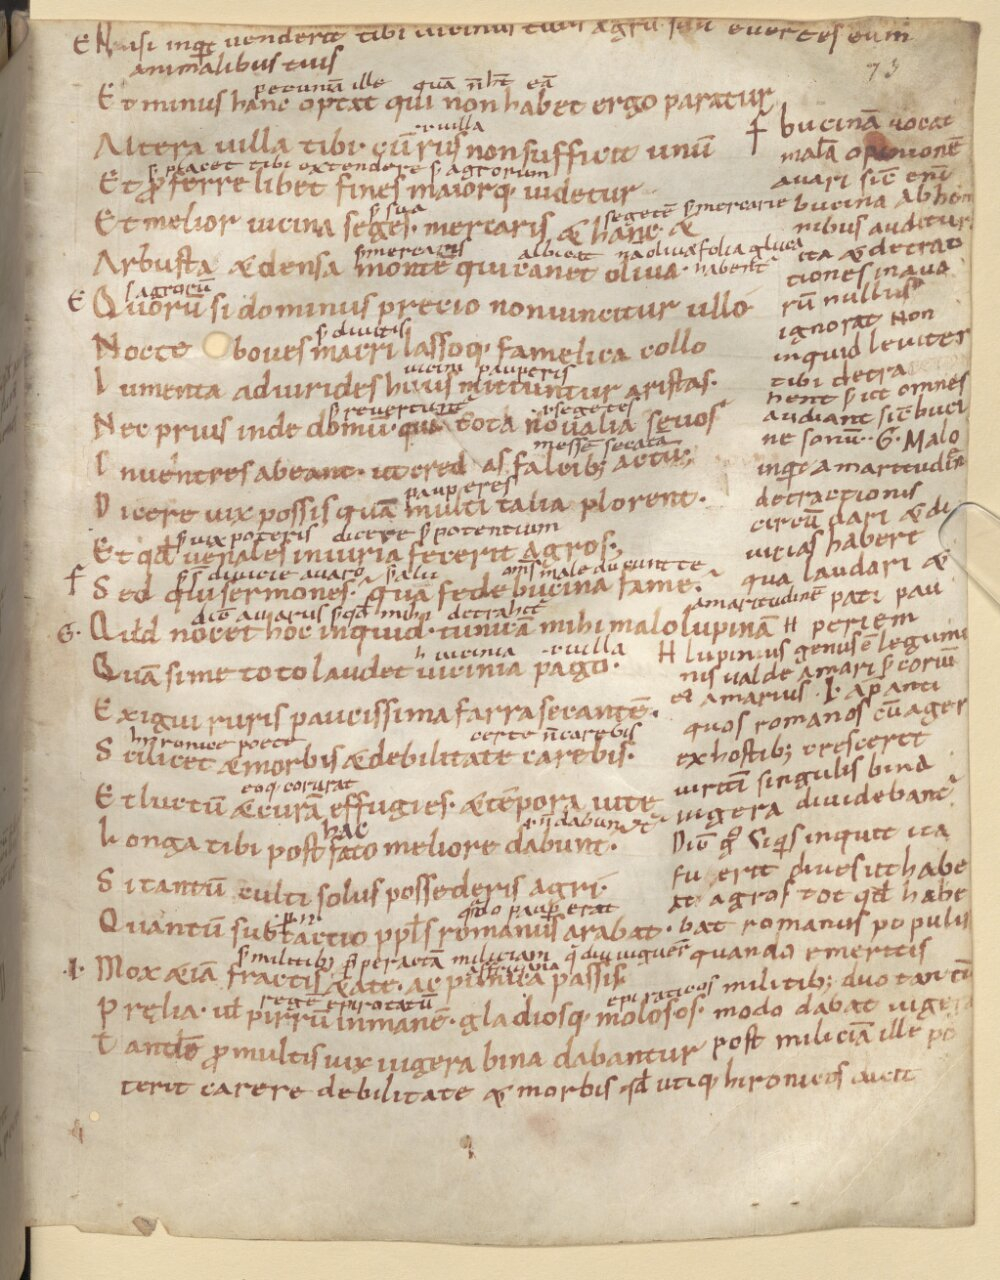 E Nisi inqt venderit tibi vicinus tuus agrū suū evertes eum
animalibus tuis
73
pecuniā ille quā n̄ ht eā
Et minus hanc optat qui non habet ergo paratur
.i. villa
Altera villa tibi. cū rus non sufficit unū
s. placet tibi extendere s. agrorum
Et pferre libet fines maiorq; videtur
s. sua segetē s. mercarie
Et melior vicina seges. mercaris & hanc. &
s. mercaris albicat na oliva folia glauca habent
Arbusta & densa montē qui canet oliva.
s. agrorū
E Quorū si dominus precio non vincitur ullo
s. divitis
Nocte boves macri lassoq; famelica collo
vicini pauperis
Iumenta ad virides huius mittuntur aristas.
s. revertunt .i. segetes
Nec prius inde domū. quā tota novalia sevos
messē secatā
In ventres abeant. ut credas falcib; actū;
pauperes
Dicere vix possis quā multi talia plorent.
s. vix poteris dicere s. potentium
Et qd venales iniuria fecerit agros;
s. s. divicie avaro s. alii oms male ducunt te
f Sed qui sermones. quā fede bucina fame.
dic avarus s. qd mihi detrahit amaritudinē
G. Quid nocet hoc inquid. tunicā mihi malo lupinā H
h vicinia .i. villa
Quā si me toto laudet vicinia pago.
Exigui ruris paucissima farra secantē.
hironice poete certe n̄ carebis
Scilicet & morbis & debilitate carebis.
Et luctū & curā effugies. & tēpora vite
hac
Longa tibi post fato meliore dabunt.
Si tantū culti solus possederis agri.
qdo pauper erat
Quantū sub tatio ppls romanus arabat.
s. militib; s. peractā miliciam
.I. Mox & iā fractis & ate. ac punica passis
rege epirotarū epiraticos
Prelia. ut pirrū inmanē. gladiosq; molosos.
Tandē p multis vix iugera bina dabantur
f bucinā vocat
malā opinionē
avari sic eni
bucina ab homi
nibus auditur
ita & detrac
tiones in ava
rū nullus
ignorat Non
inquid leviter
tibi detra
hent s. ut omnes
audiant sic buci
ne sonū. G. Malo
inqt amaritudinē
detractionis
circū dari & di
vicias habere
qua laudari &
pati pau
periem
H lupinus genus ē legumi
nis valde amari s. coriū
ei amarius. I. ap anti
quos romanos cū ager
ex hostib; cresceret
virtī singulis bina
iugera dividebant
Dic qr Si qis inquit ita
fuerit dives ut habe
at agros tot qd habe
bat romanus populus
quando emeritis
militib; duo tantū
modo dabat iugera
post miliciā ille po
terit carere debilitate & morbis qd utiq; hironicos dicit